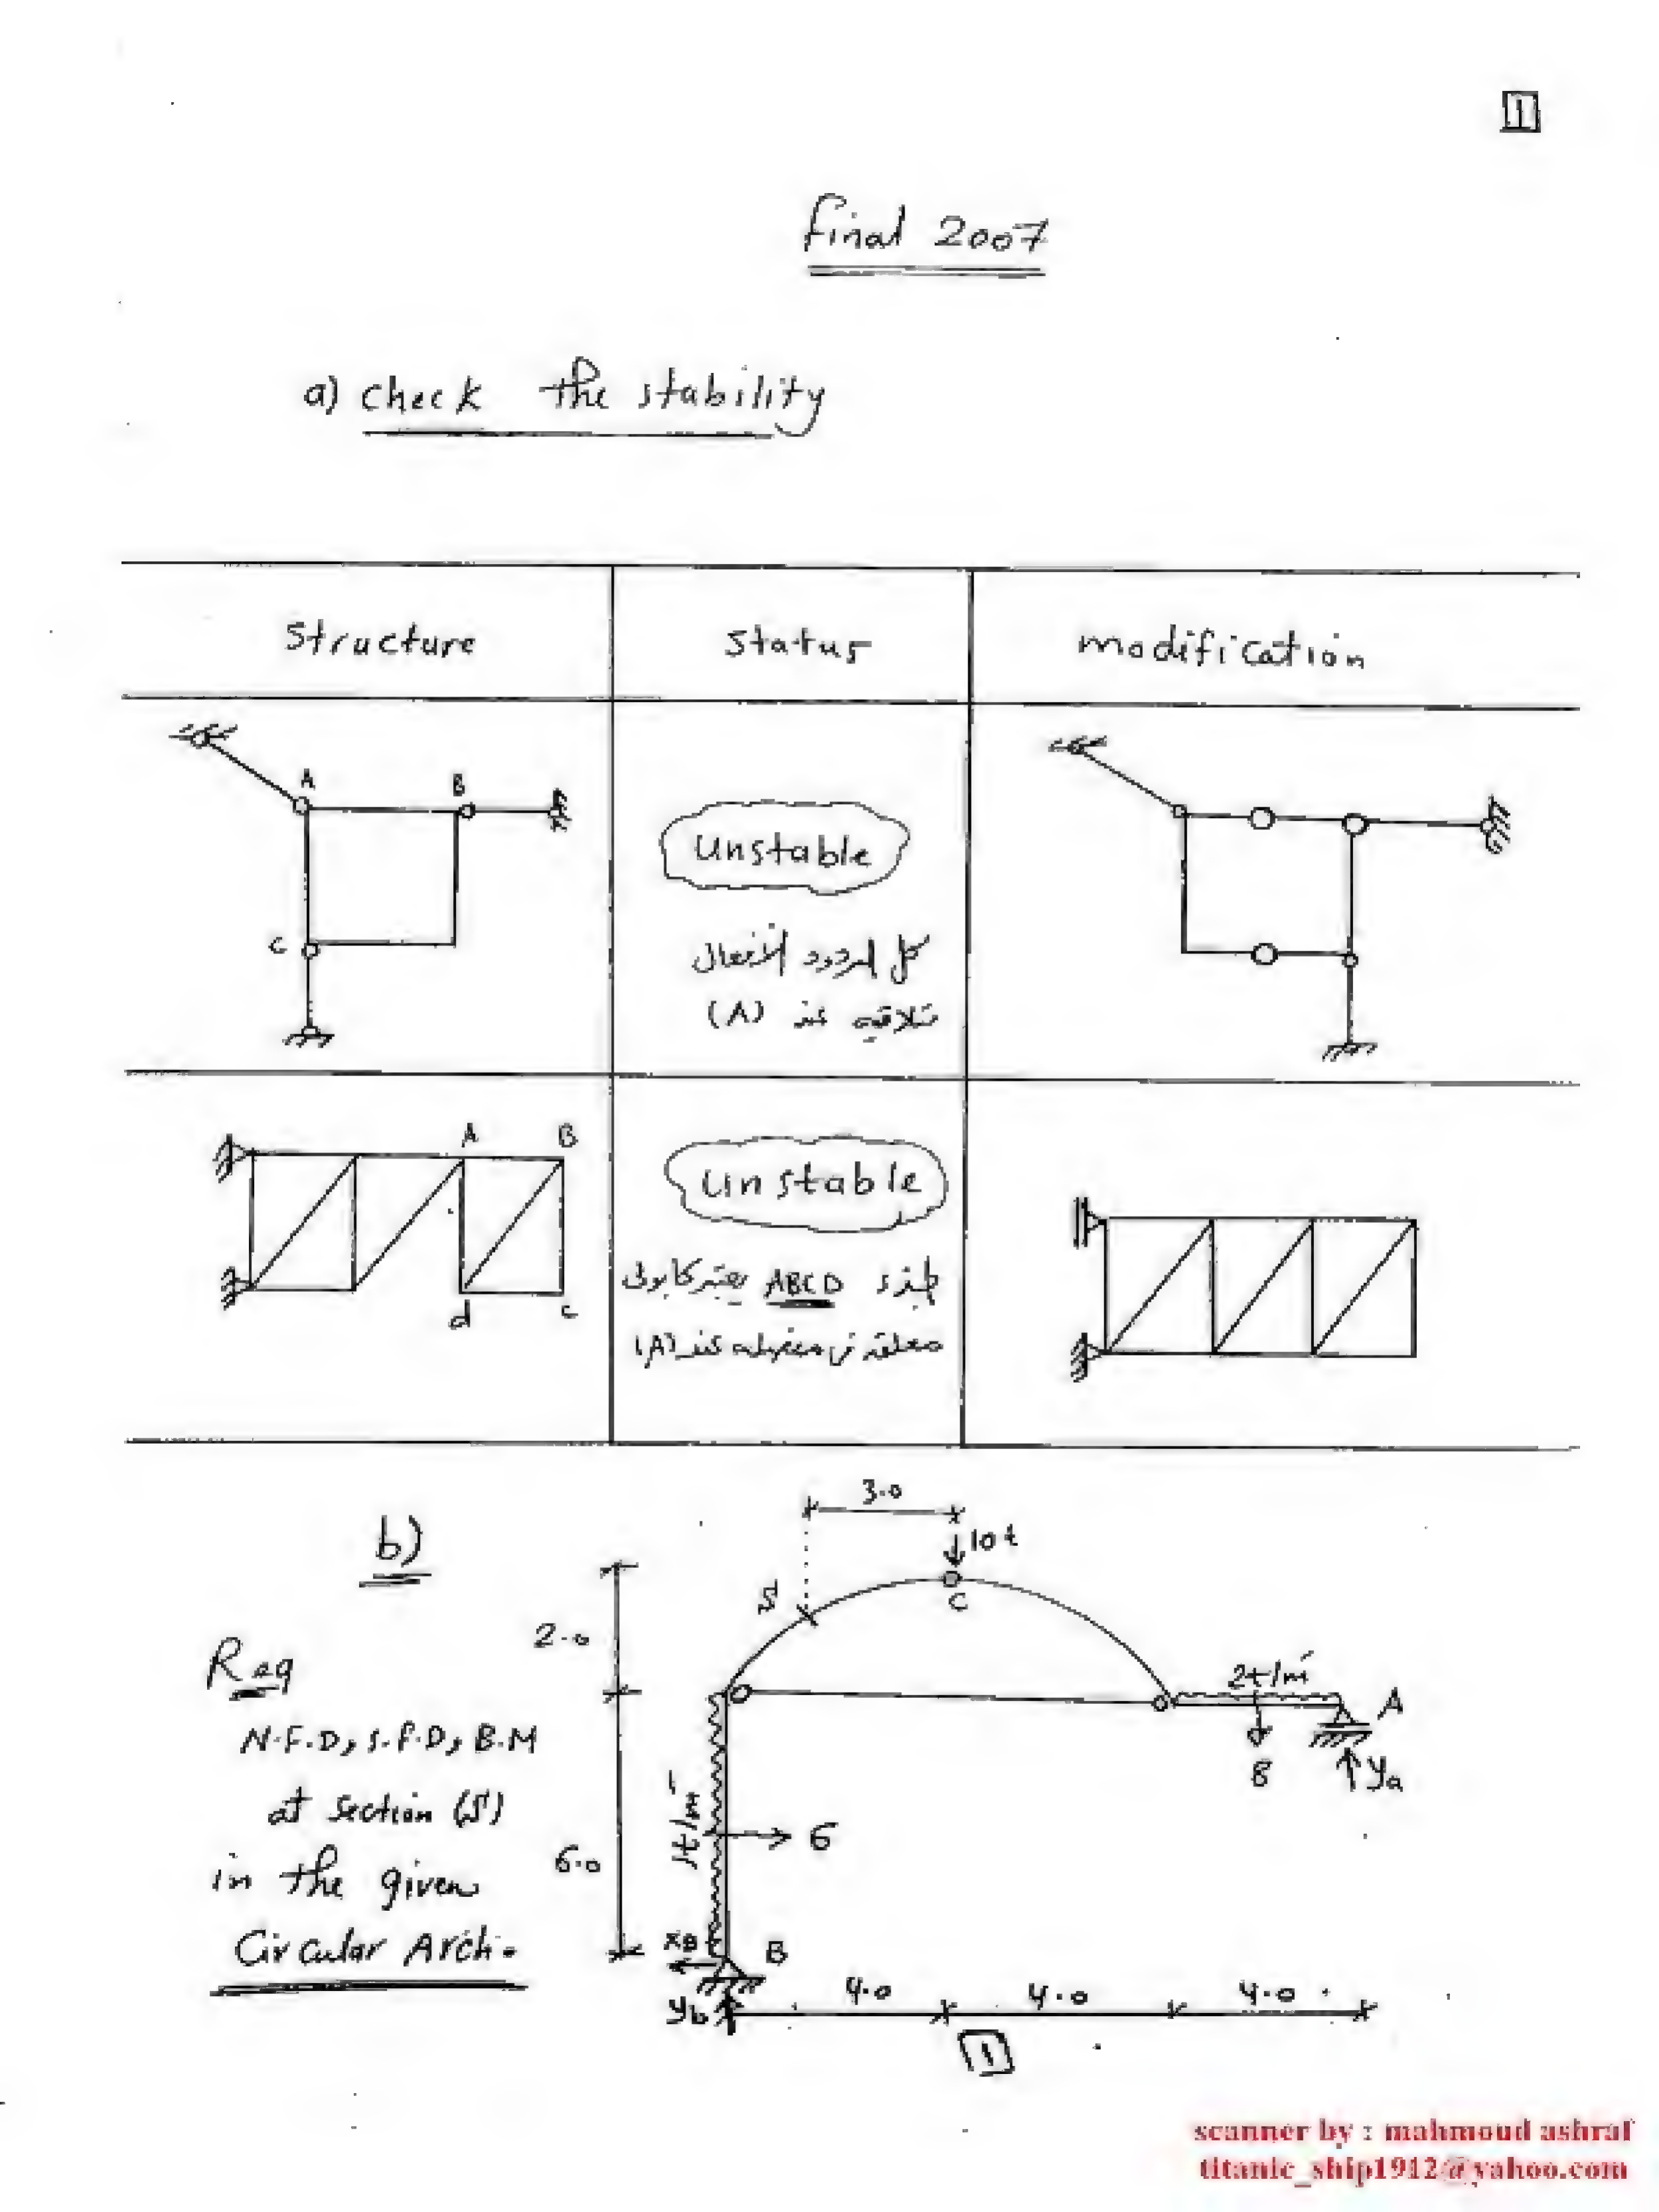 1
final 2007
a) check the stability
structure status modification
A B
C
Unstable
كل ردود الأفعال
متلاقيه عند (A)
A B
d c
Unstable
جزء ABCD يعتبر كابولى
(A) عند
b)
3.0
10t
C
S
2.0
Req
N.F.D, S.F.D, B.M
at section (S)
in the given
Circular Arch.
2t/m'
A
8
Ya
1t/m'
6
6.0
XB
B
Yb
4.0 4.0 4.0
1
scanner by : mahmoud ashraf
titanic_ship1912@yahoo.com